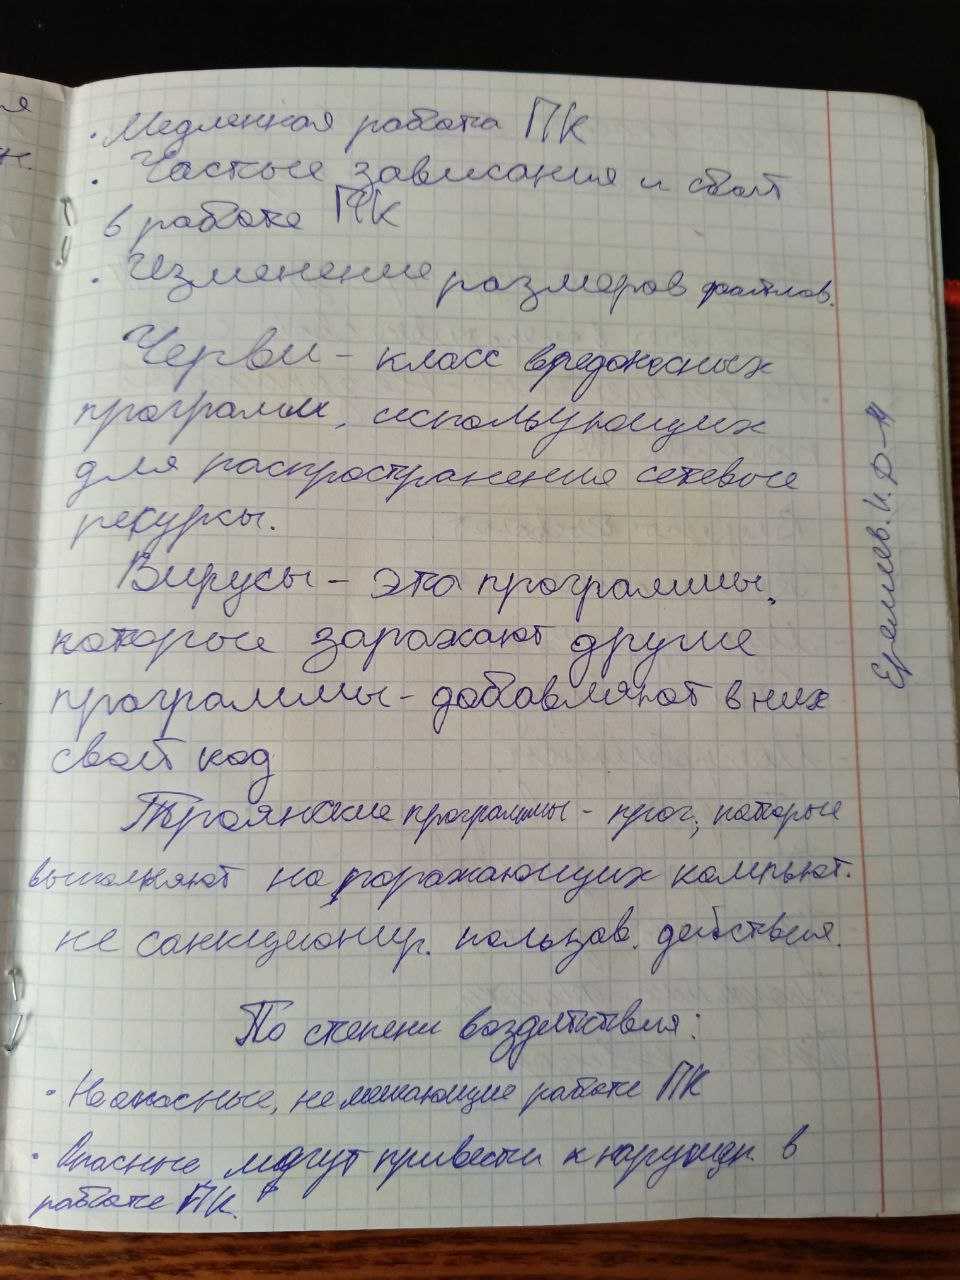 · Медленная работа ПК
· Частые зависания и сбои
в работе ПК
· Изменение размеров файлов.
Черви - класс вредоносных
программ, использующих
для распространения сетевые
ресурсы.
Вирусы - это программы,
которые заражают другие
программы - добавляют в них
свой код
Троянские программы - прог., которые
выполняют на поражающих компьют.
не санкционир. пользов. действия.
По степени воздействия:
· Неопасные, не мешающие работе ПК
· Опасные могут привести к нарушен. в
работе ПК.
Еремеев.И.Д-14
я
н.